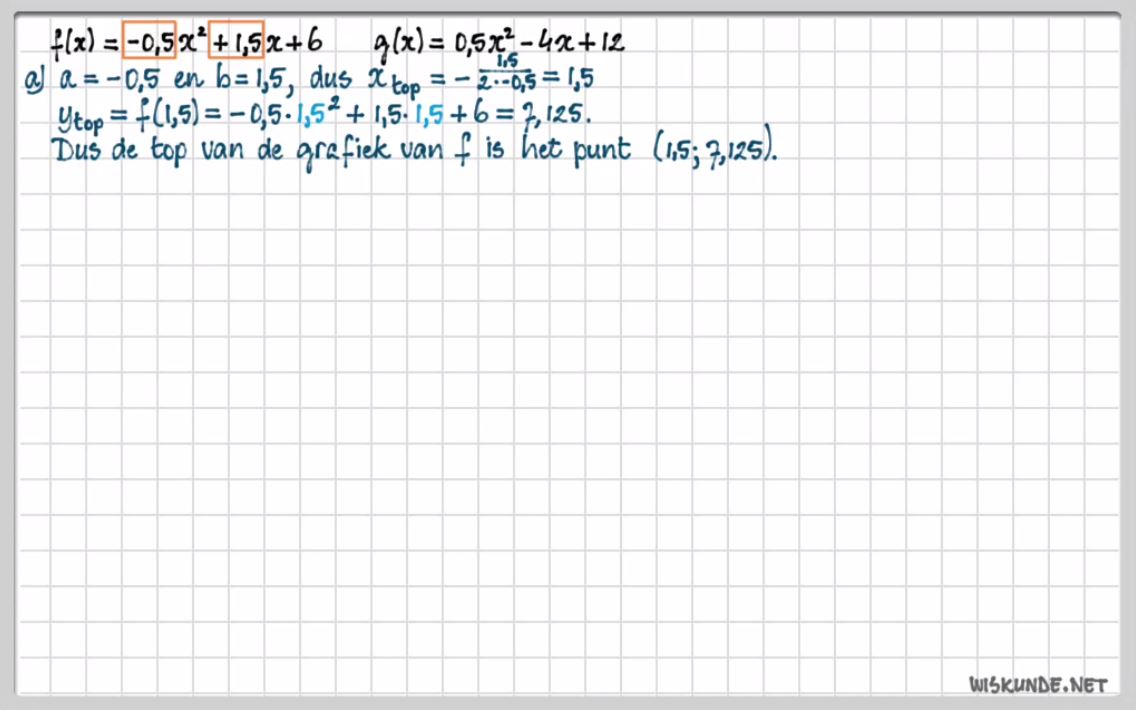 f(x) = -0,5x² + 1,5x + 6 g(x) = 0,5x² - 4x + 12
a) a = -0,5 en b = 1,5, dus x_top = - 1,5/(2·-0,5) = 1,5
y_top = f(1,5) = -0,5·1,5² + 1,5·1,5 + 6 = 7,125.
Dus de top van de grafiek van f is het punt (1,5; 7,125).
WISKUNDE.NET